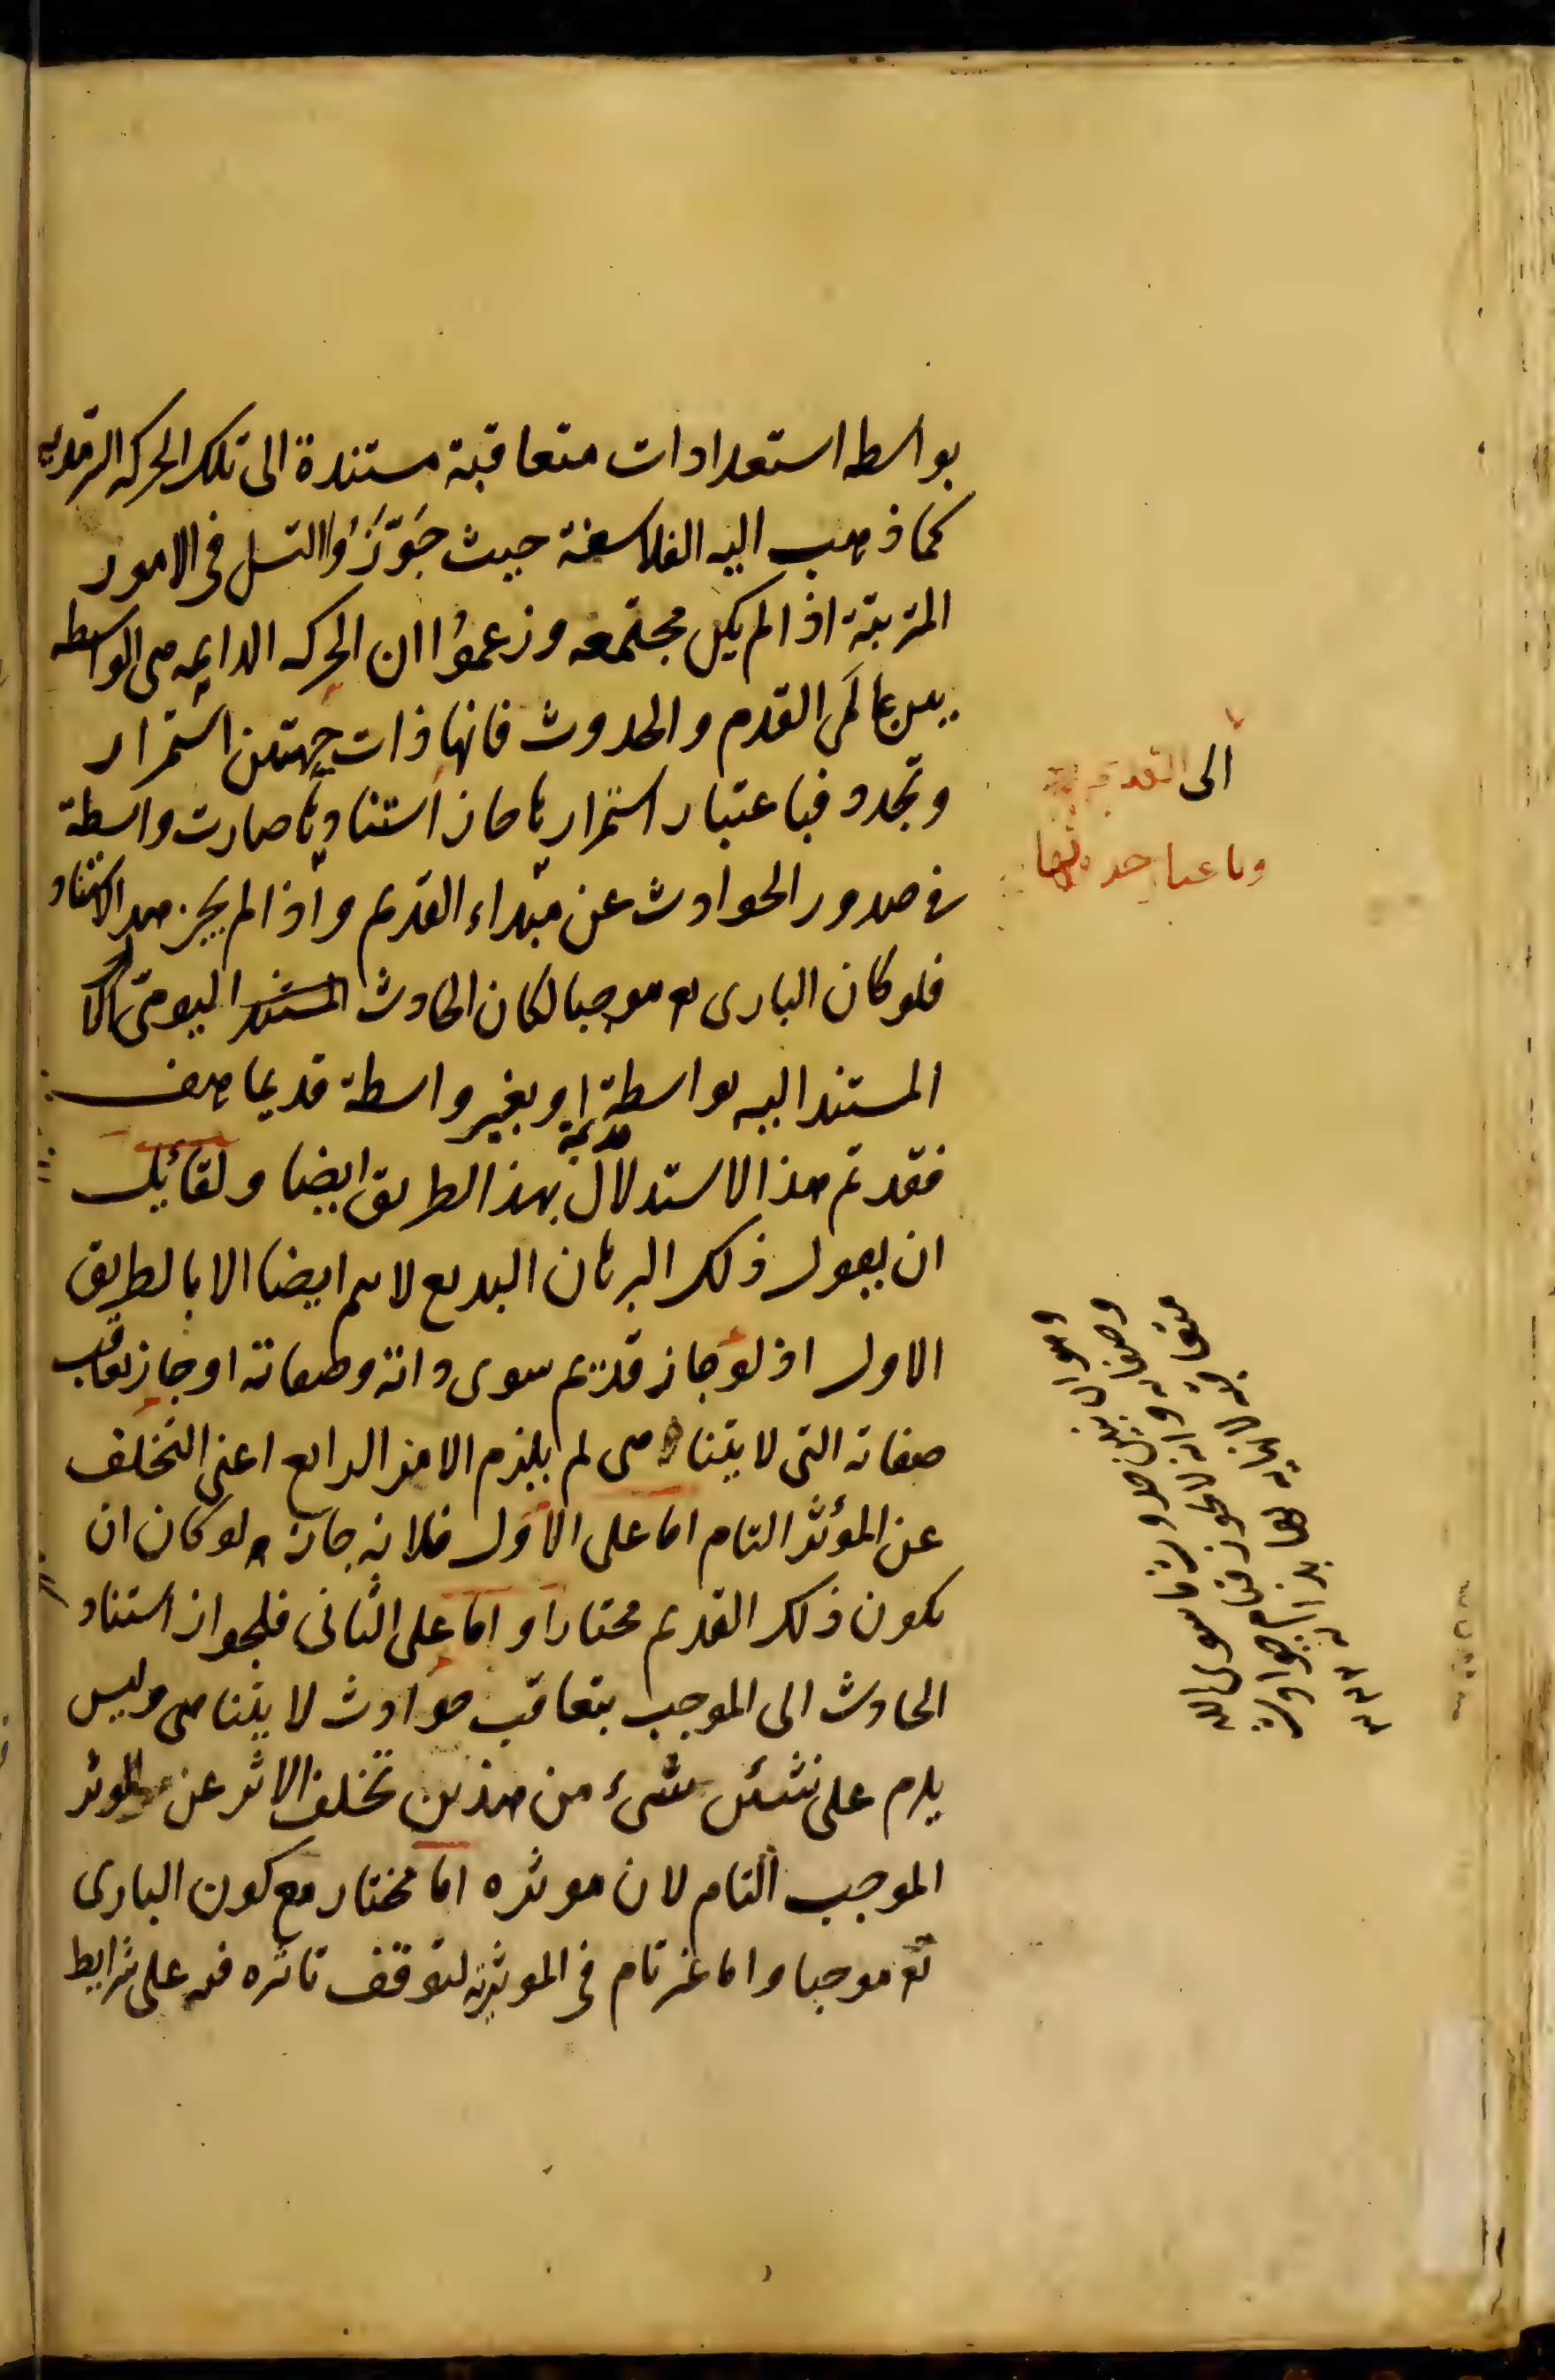 بواسطه استعدادات متعاقبة مستندة الى تلك الحركه السرمديه
كما ذهب اليه الفلاسفة حيث جَوَّزُوا التسل فى الامور
المترتبة اذا لم يكن مجتمعه وزعموُا ان الحركه الدائمه هى الواسطه
بين عالمى القدم والحدوث فانها ذات جهتين استمرار
وتجدد فباعتبار استمرارها جاز استنادها صارت واسطة
فى صدور الحوادث عن مبداء القديم واذا لم يجز هذا الاستناد
فلو كان البارى تع موجبا لكان الحادث المستند اليومى
المستند اليه بواسطة او بغير واسطة قديما هف
قديمة
فقد تم هذا الاستدلال بهذا الطريق ايضا ولقائل
ان يقول ذلك البرهان البديع لا يتم ايضا الا بالطريق
الاول اذ لو جاز قديم سوى ذاته وصفاته او جاز تعاقب
صفاته التى لا يتناهى لم يلزم الامر الرابع اعنى التخلف
عن المؤثر التام اما على الاول فلانه جاز لو كان ان
يكون ذلك القديم مختارا و اما على الثانى فلجواز استناد
الحادث الى الموجب بتعاقب حوادث لا يتناهى وليس
يلزم على شىء من هذين تخلف الاثر عن الموثر
الموجب التام لان موثره اما مختار مع كون البارى
تع موجبا واما غير تام فى الموثرية لتوقف تاثره فيه على شرايط
الى القديم
وباعتبار حدوثها
وهو ان يبين حدوث ما سوى الله
وصفاته وانه لا يجوز قيام حوادث
متعاقبة لا نهاية لها بذاته